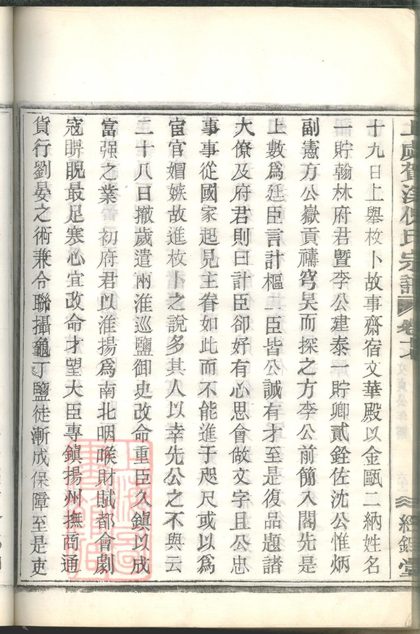 十九日上舉枚卜故事齋宿文華殿以金甌二納姓名
一貯翰林府君暨李公建泰一貯卿貳銓佐沈公惟炳
副憲方公嶽貢禱穹昊而探之方李公前簡入閣先是
上數為廷臣言計樞二臣皆公誠有才至是復品題諸
大僚及府君則曰計臣卻好有心思會做文字且公忠
事事從國家起見主眷如此而不能進于咫尺或以為
宦官媢嫉故進枚卜之說多其人以幸先公之不與云
二十八日撤歲遣兩淮巡鹽御史改命重臣久鎮以成
富强之業 初府君以淮揚為南北咽喉財賦都會劇
寇睥睨最足寒心宜改命才望大臣專鎮揚州撫商通
貨行劉晏之術兼令聯攝竈丁鹽徒漸成保障至是吏
上虞賀溪倪氏宗譜 卷十六
經鉏堂